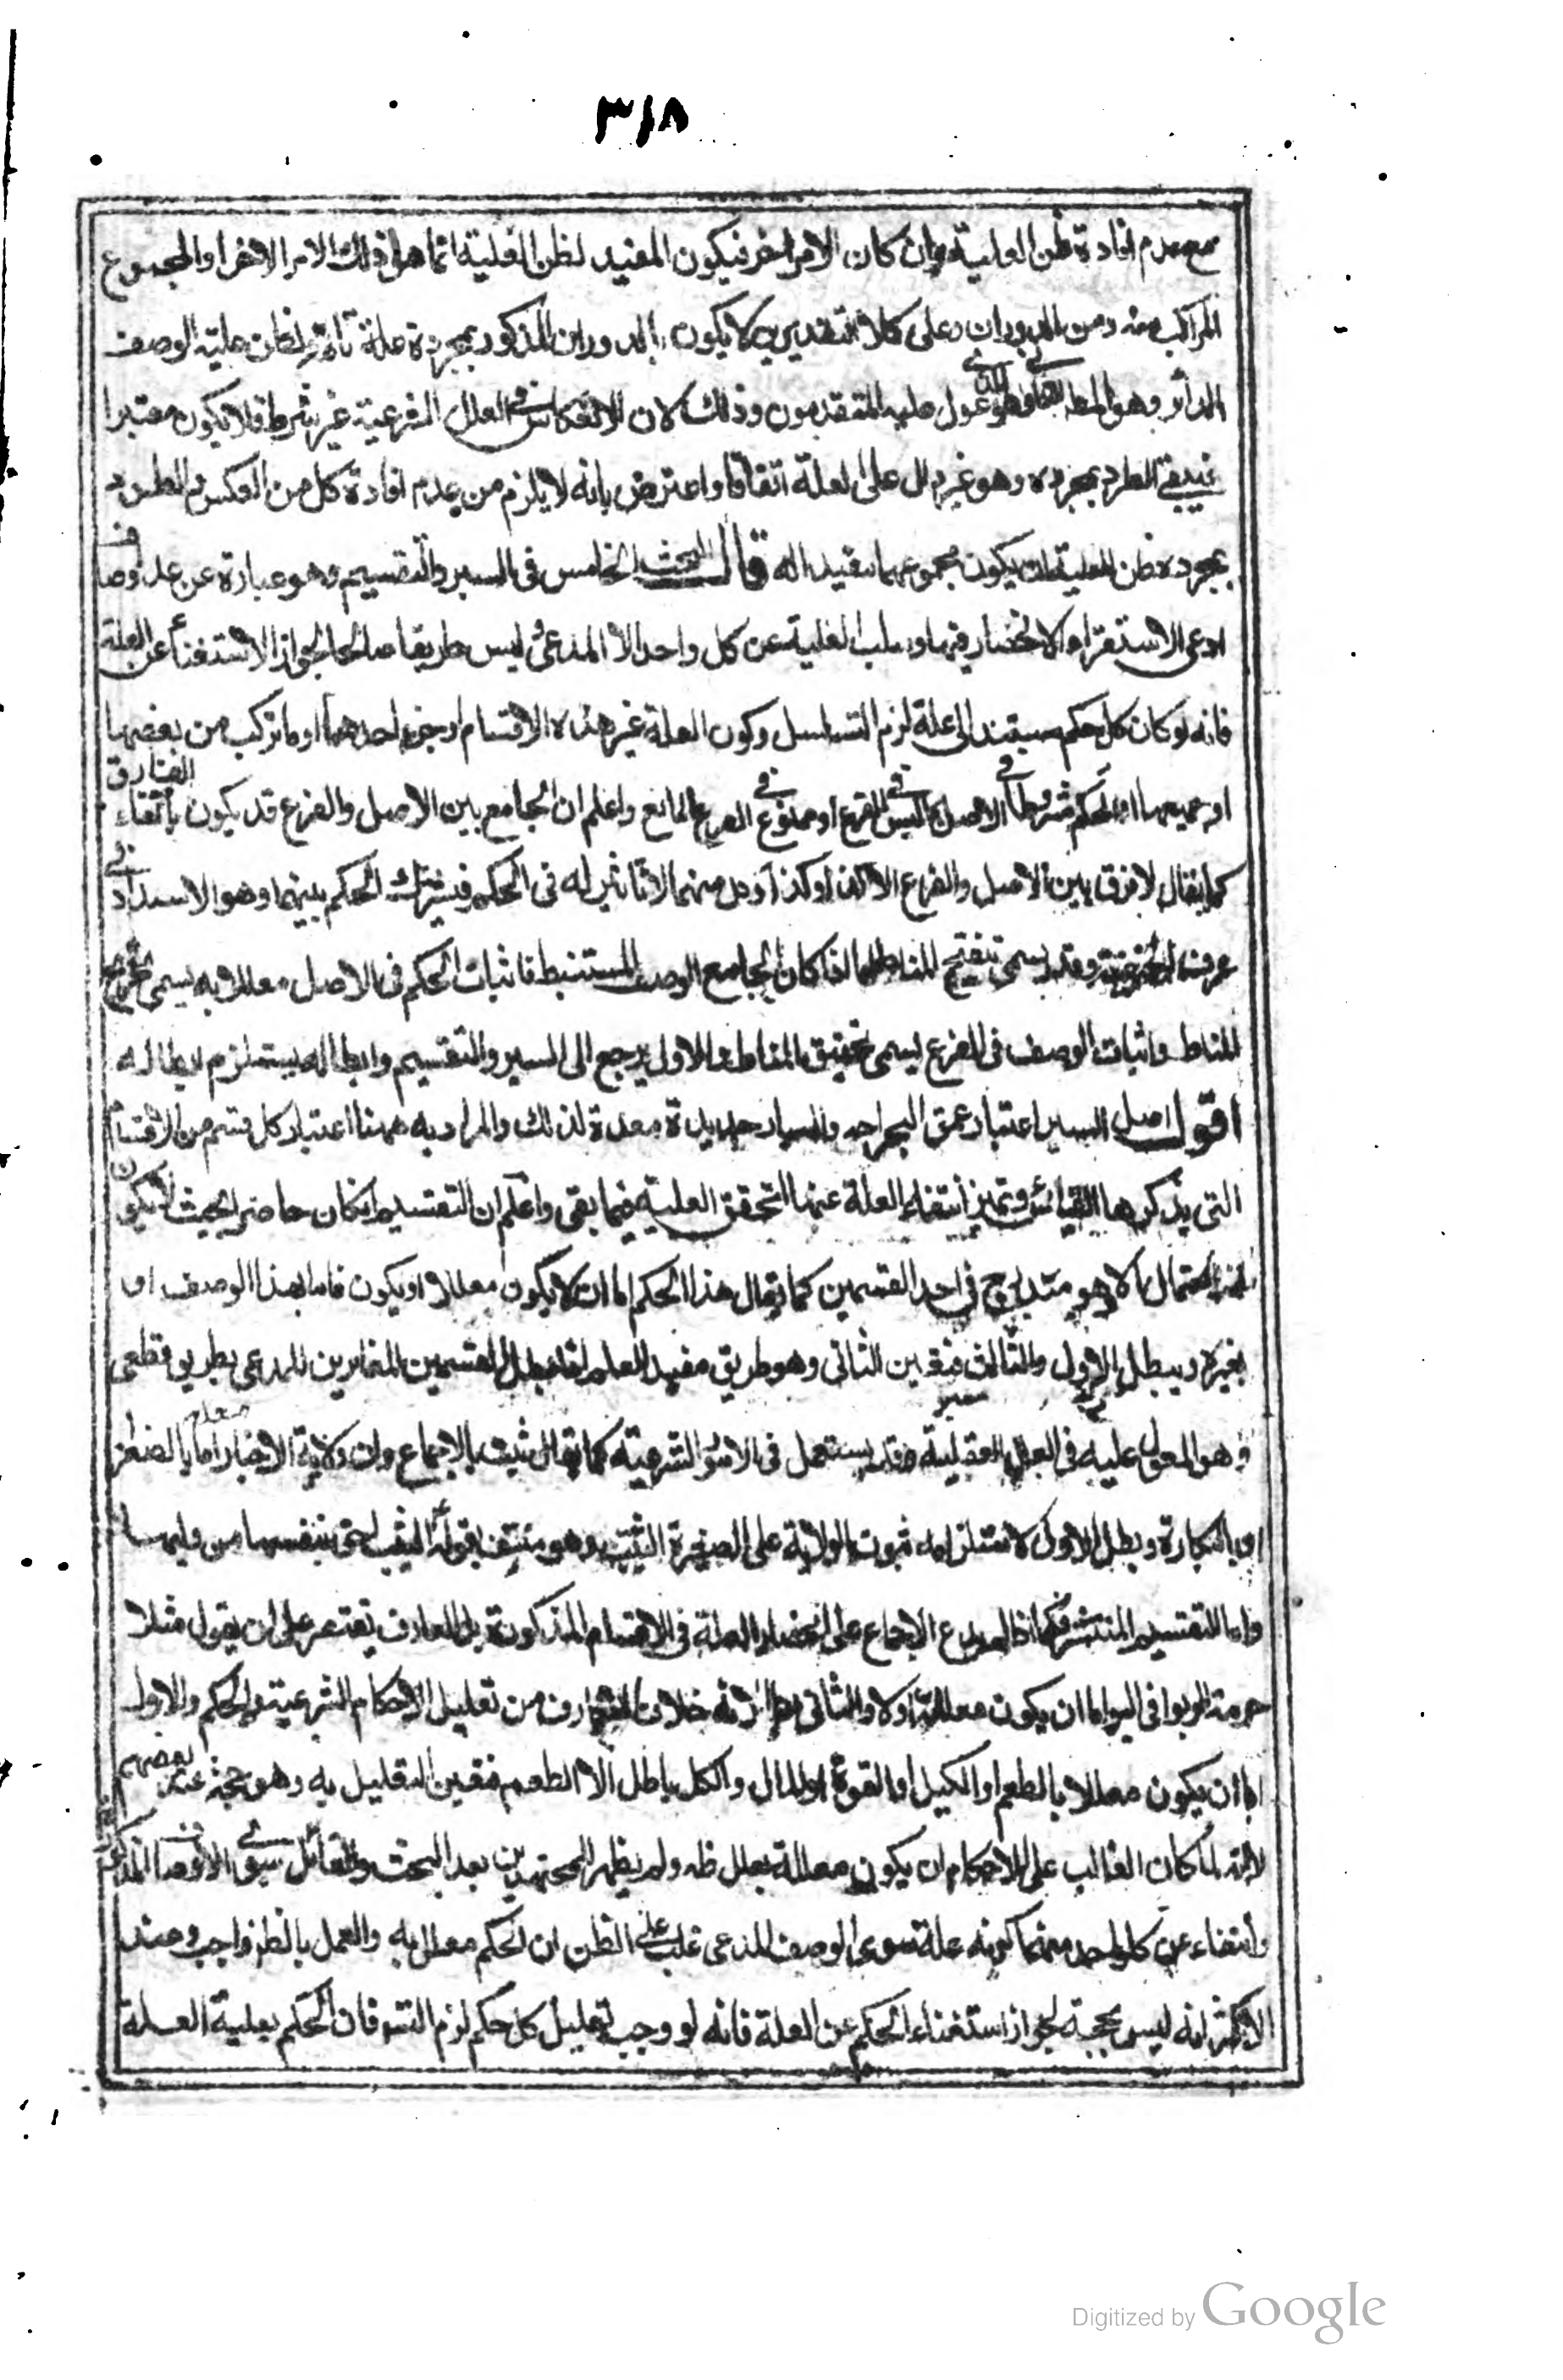 ٣١٨
مع عدم افادة ظن العلية وان كان الامر اخر فيكون المفيد لظن العلية انما هو ذلك الامر الاخر او المجموع
المركب منه ومن الدوران وعلى كلا التقديرين لا يكون الدوران المذكور بمجرده علة تامة لظن علية الوصف
الدائر وهو المط الثاني وهو الذي عول عليه المتقدمون وذلك لان الانعكاس في العلل الشرعية غير شرط فلا يكون معتبرا
فيبقى الطرد بمجرده وهو غير دال على العلة اتفاقا واعترض بانه لا يلزم من عدم افادة كل من العكس والطرد
بمجرده ظن العلية ان يكون مجموعهما مفيدا له قال البحث الخامس في السبر والتقسيم وهو عبارة عن عد اوصاف
ادعى الاستقراء الانحصار فيها وسلب العلية عن كل واحد الا المدعى وليس طريقا صالحا لجواز الاستغناء عن العلة
فانه لو كان كل حكم يستند الى علة لزم التسلسل وكون العلة غير هذه الاقسام او جزء احدهما او ما تركب من بعضها
او جميعها او الحكم مشروطا في الاصل بما ليس في الفرع او ممنوع في الفرع لمانع واعلم ان الجامع بين الاصل والفرع قد يكون بالغاء الفارق
كما يقال لا فرق بين الاصل والفرع الا كذا او كذا وكل منهما لا تاثير له في الحكم فيشترك الحكم بينهما وهو الاستدلال في
عرف الحنفية وقد يسمى تنقيح المناط اما اذا كان الجامع الوصف المستنبط فاثبات الحكم في الاصل معللا به يسمى تخريج
المناط واثبات الوصف في الفرع يسمى تحقيق المناط والاول يرجع الى السبر والتقسيم وابطاله يستلزم ابطاله
اقول اصل السبر اعتبار عمق الجراحة والمسبار حديدة معدة لذلك والمراد به ههنا اعتبار كل قسم من الاقسام
التي يذكرها القيائس وتميز انتفاء العلة عنها لتحقق العلية فيما بقى واعلم ان التقسيم ان كان حاصرا بحيث لا يكون
احتمال الا وهو مندرج في احد القسمين كما يقال هذا الحكم اما ان لا يكون معللا او يكون فاما بهذا الوصف او
بغيره ويبطل الاول والثالث فتعين الثاني وهو طريق مفيد للعلم اذا بطل القسمين المغايرين للمدعى بطريق قطعي
وهو المعول عليه في العلل العقلية وقد يستعمل في الامور الشرعية كما يقال ثبت بالاجماع ان ولاية الاجبار اما معللة بالصغر
او بالبكارة ويبطل الاول لاستلزامه ثبوت الولاية على الصغيرة الثيب وهو منتف بقوله الثيب احق بنفسها من وليها
واما التقسيم المنتشر فكما اذا لم يدع الاجماع على انحصار العلة في الاقسام المذكورة بل المعارف يقتصر على ان يقول مثلا
حرمة الربوا في البر اما ان يكون معللة او لا والثاني بط لانه خلاف المتعارف من تعليل الاحكام الشرعية بالحكم والاول
اما ان يكون معللا بالطعم او الكيل او القوة او المال والكل باطل الا الطعم فتعين التعليل به وهو حجة عند بعضهم
لانه لما كان الغالب على الاحكام ان يكون معللة بعلل ظ ولم يظهر للمجتهدين بعد البحث والتفتيش سوى الاوصاف المذكورة
وانتفاء عن كل واحد منهما كونه علة سوى الوصف المدعى غلب على الظن ان الحكم معلل به والعمل بالظن واجب وعند
الاكثر انه ليس بحجة لجواز استغناء الحكم عن العلة فانه لو وجب تعليل كل حكم لزم التس فان الحكم بعلية العلة
Digitized by Google